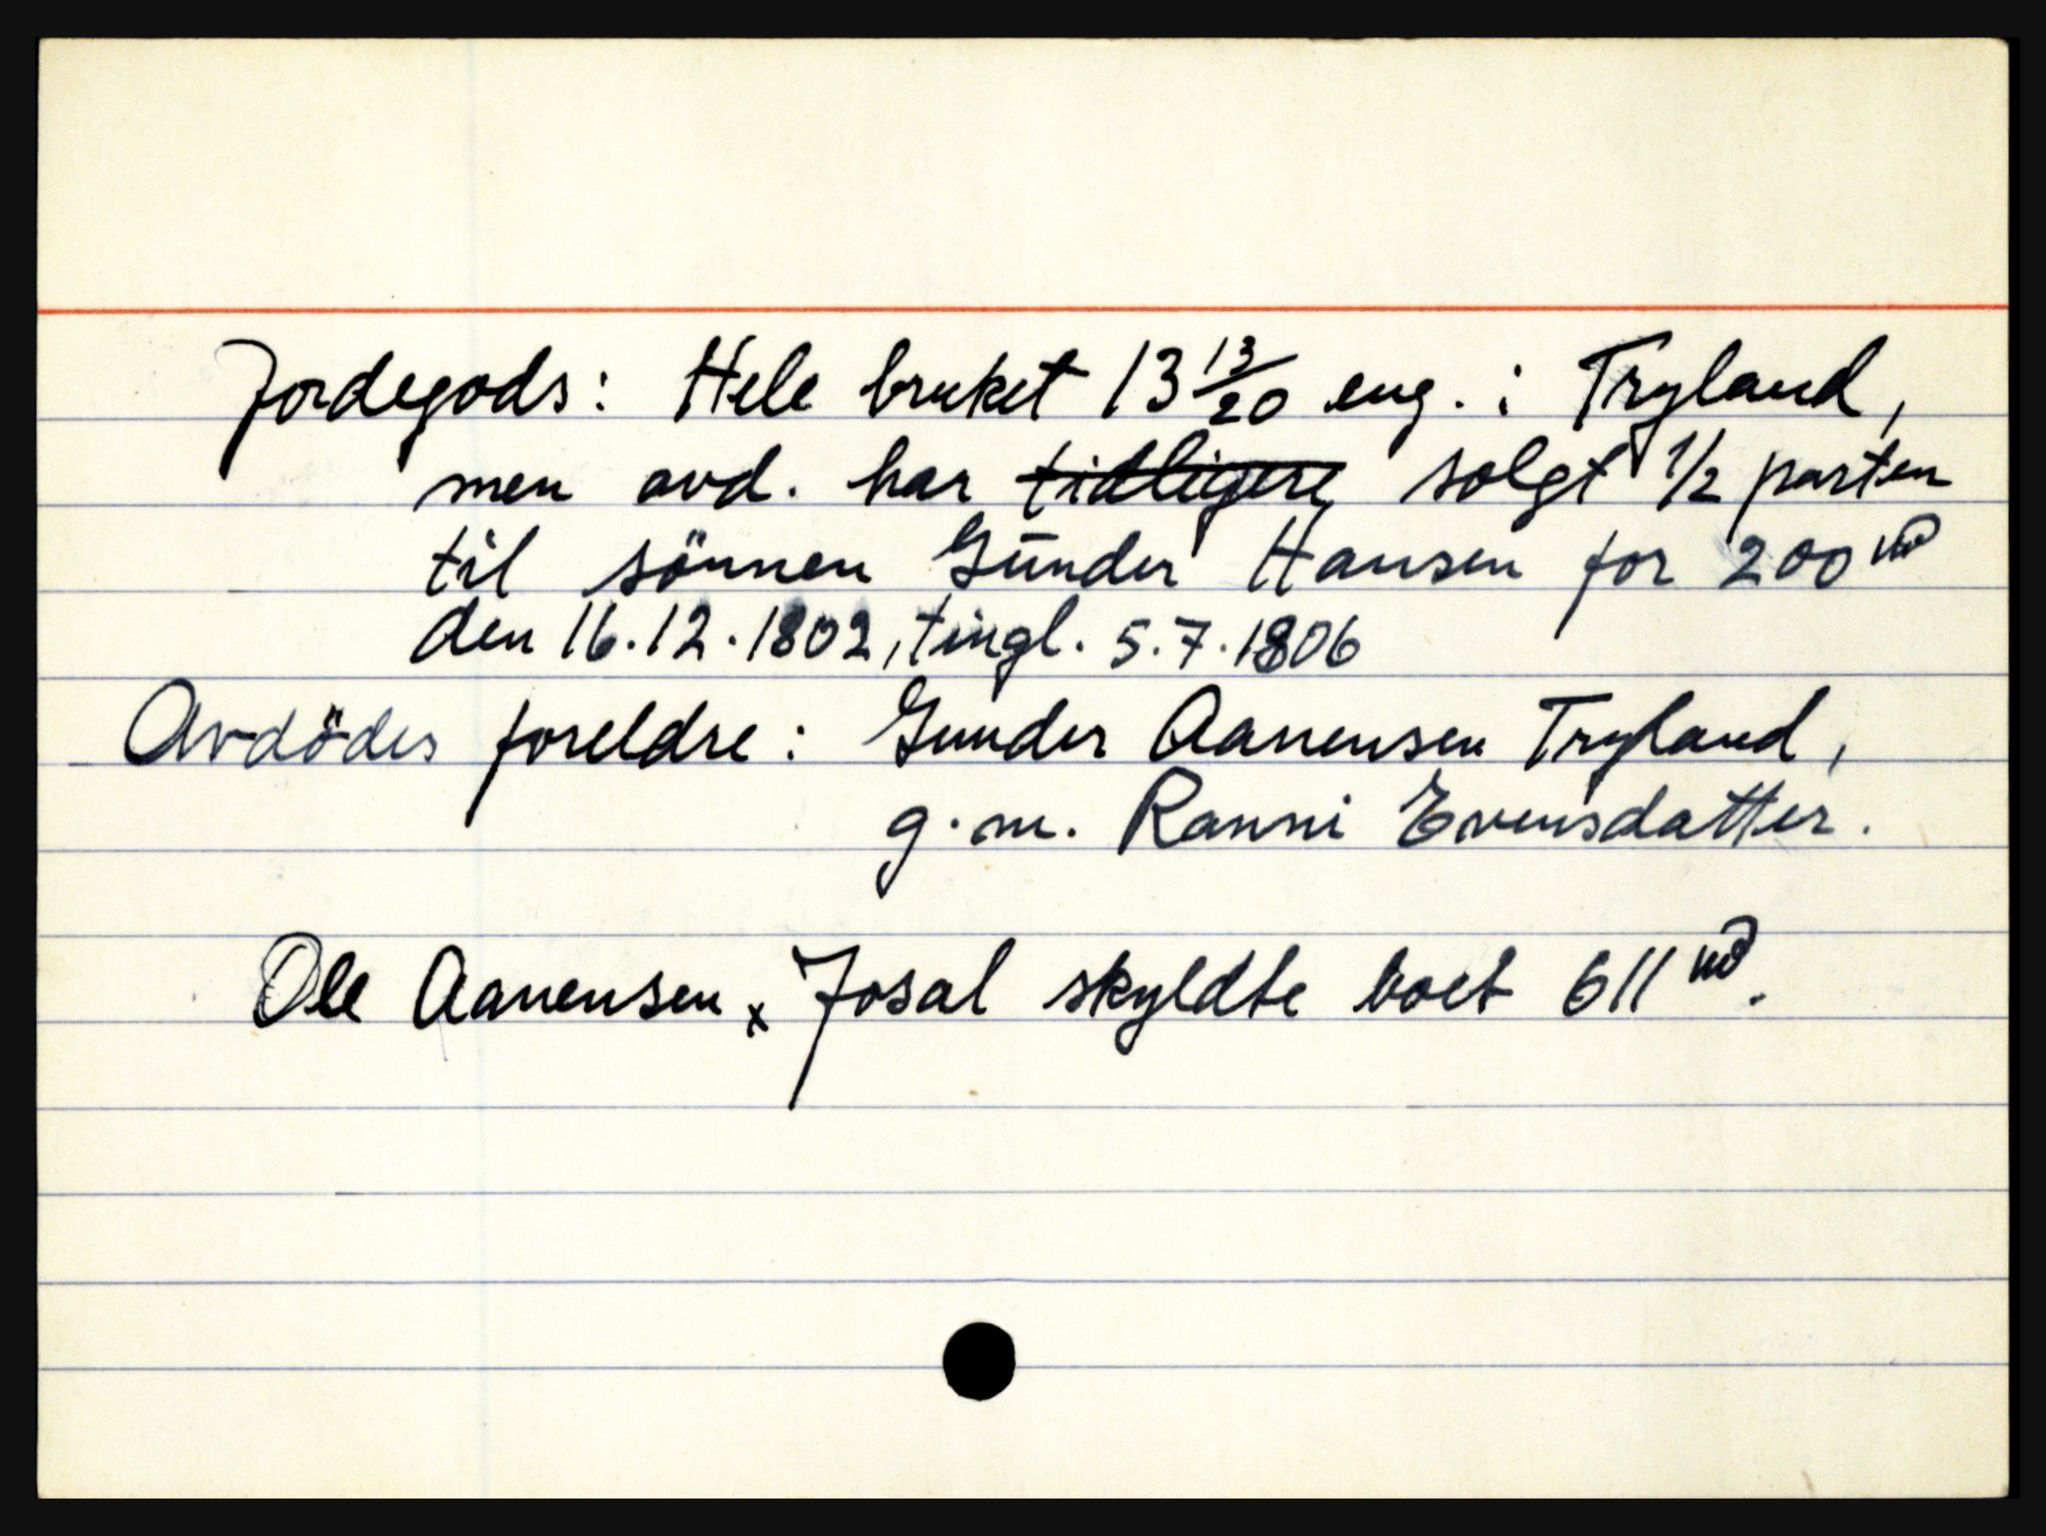 Jordegods: Hele bruket 13 13/20 eng. i Tryland,
men avd. har ~~tidligere~~ solgt 1/2 parten
til sönnen Gūnder Hansen for 200 rd
den 16.12.1802, tingl. 5.7.1806
Avdödes foreldre: Gunder Aanensen Tryland,
g.m. Ranni Evensdatter.
Ole Aanensen x Josal skyldte boet 611 rd.